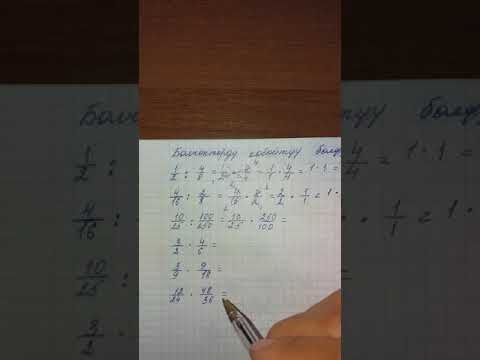 Бөлчөктөрдү көбөйтүү бөлү
1/2 : 4/8 = 1/2 · 8/4 = 1/1 · 4/4 = 1 · 1 = 1
4/16 : 2/8 = 4/16 · 8/2 = 2/2 · 1/1 = 1 ·
10/25 : 100/250 = 10/25 · 250/100 =
3/2 · 4/6 =
3/9 · 9/18 =
12/24 · 48/36 =